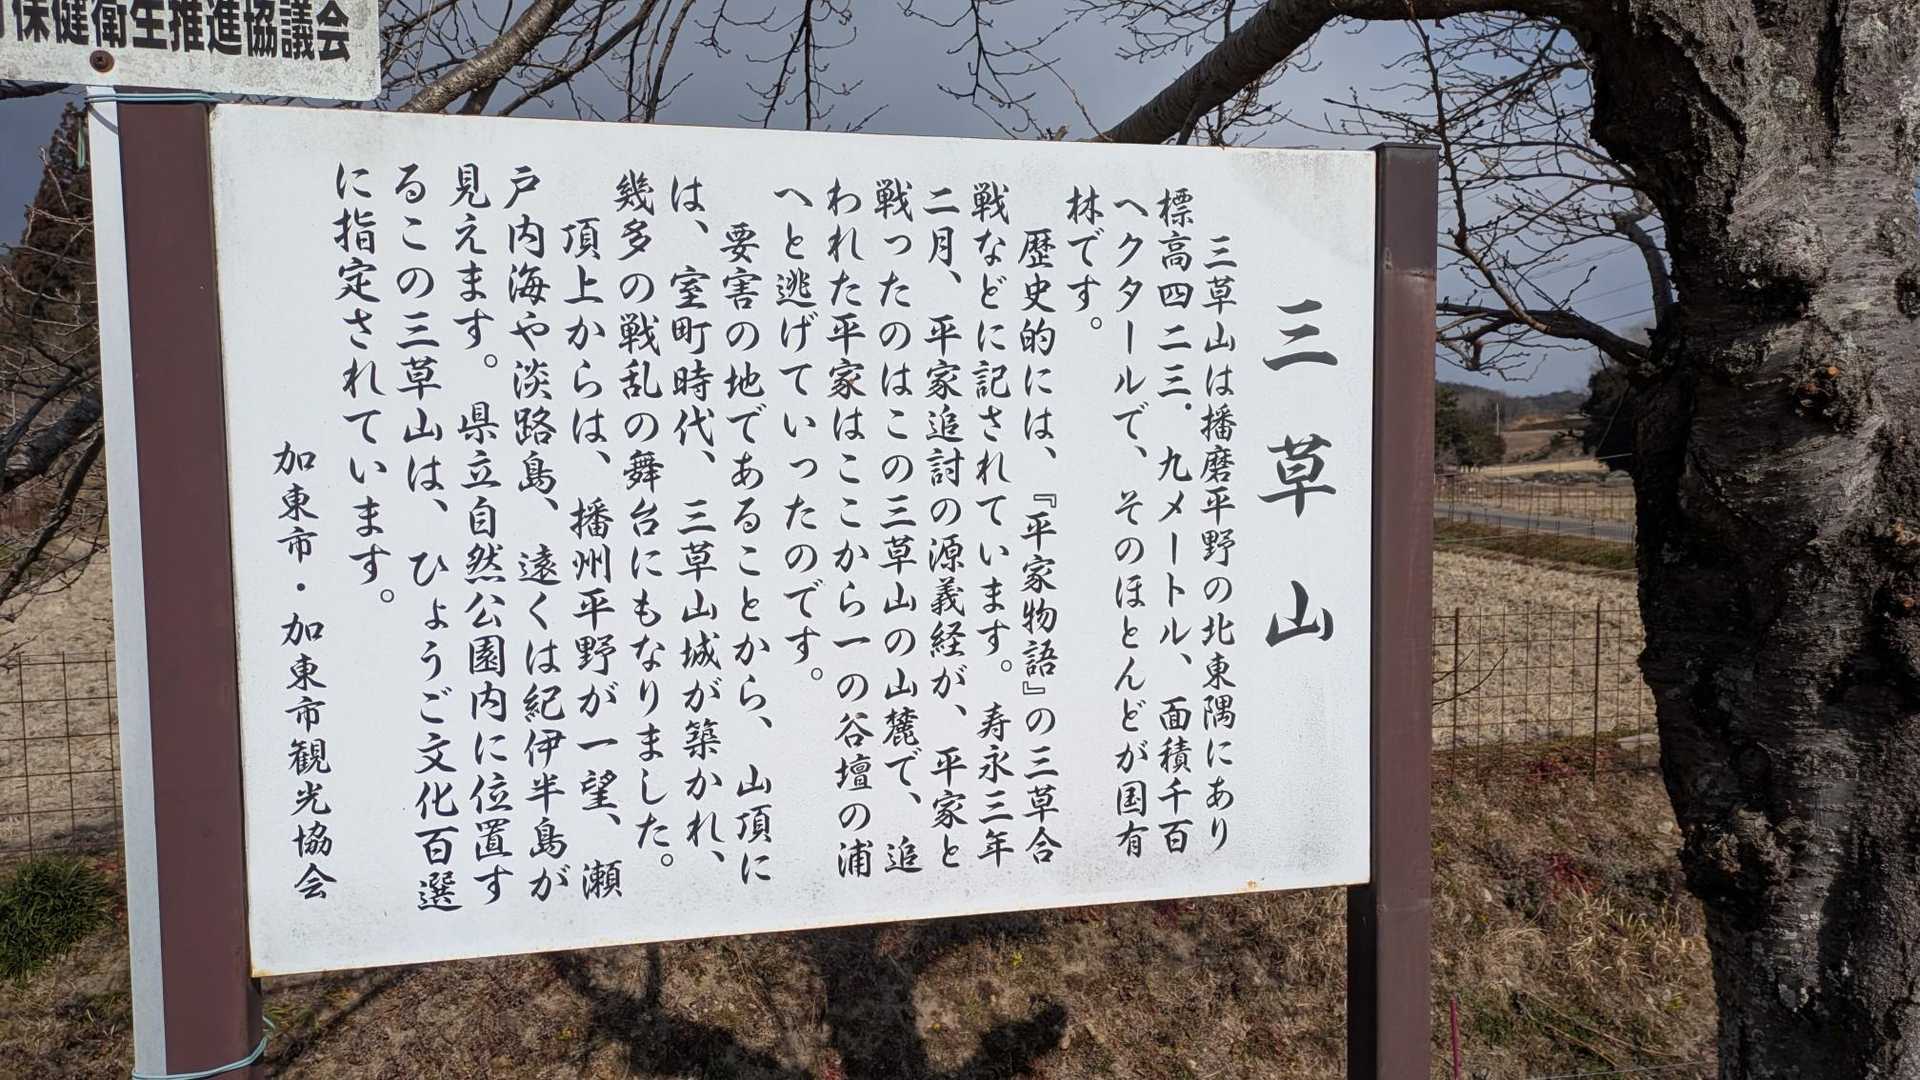 保健衛生推進協議会
三草山
三草山は播磨平野の北東隅にあり
標高四二三．九メートル、面積千百
ヘクタールで、そのほとんどが国有
林です。
歴史的には、『平家物語』の三草合
戦などに記されています。寿永三年
二月、平家追討の源義経が、平家と
戦ったのはこの三草山の山麓で、追
われた平家はここから一の谷壇の浦
へと逃げていったのです。
要害の地であることから、山頂に
は、室町時代、三草山城が築かれ、
幾多の戦乱の舞台にもなりました。
頂上からは、播州平野が一望、瀬
戸内海や淡路島、遠くは紀伊半島が
見えます。県立自然公園内に位置す
るこの三草山は、ひょうご文化百選
に指定されています。
加東市・加東市観光協会